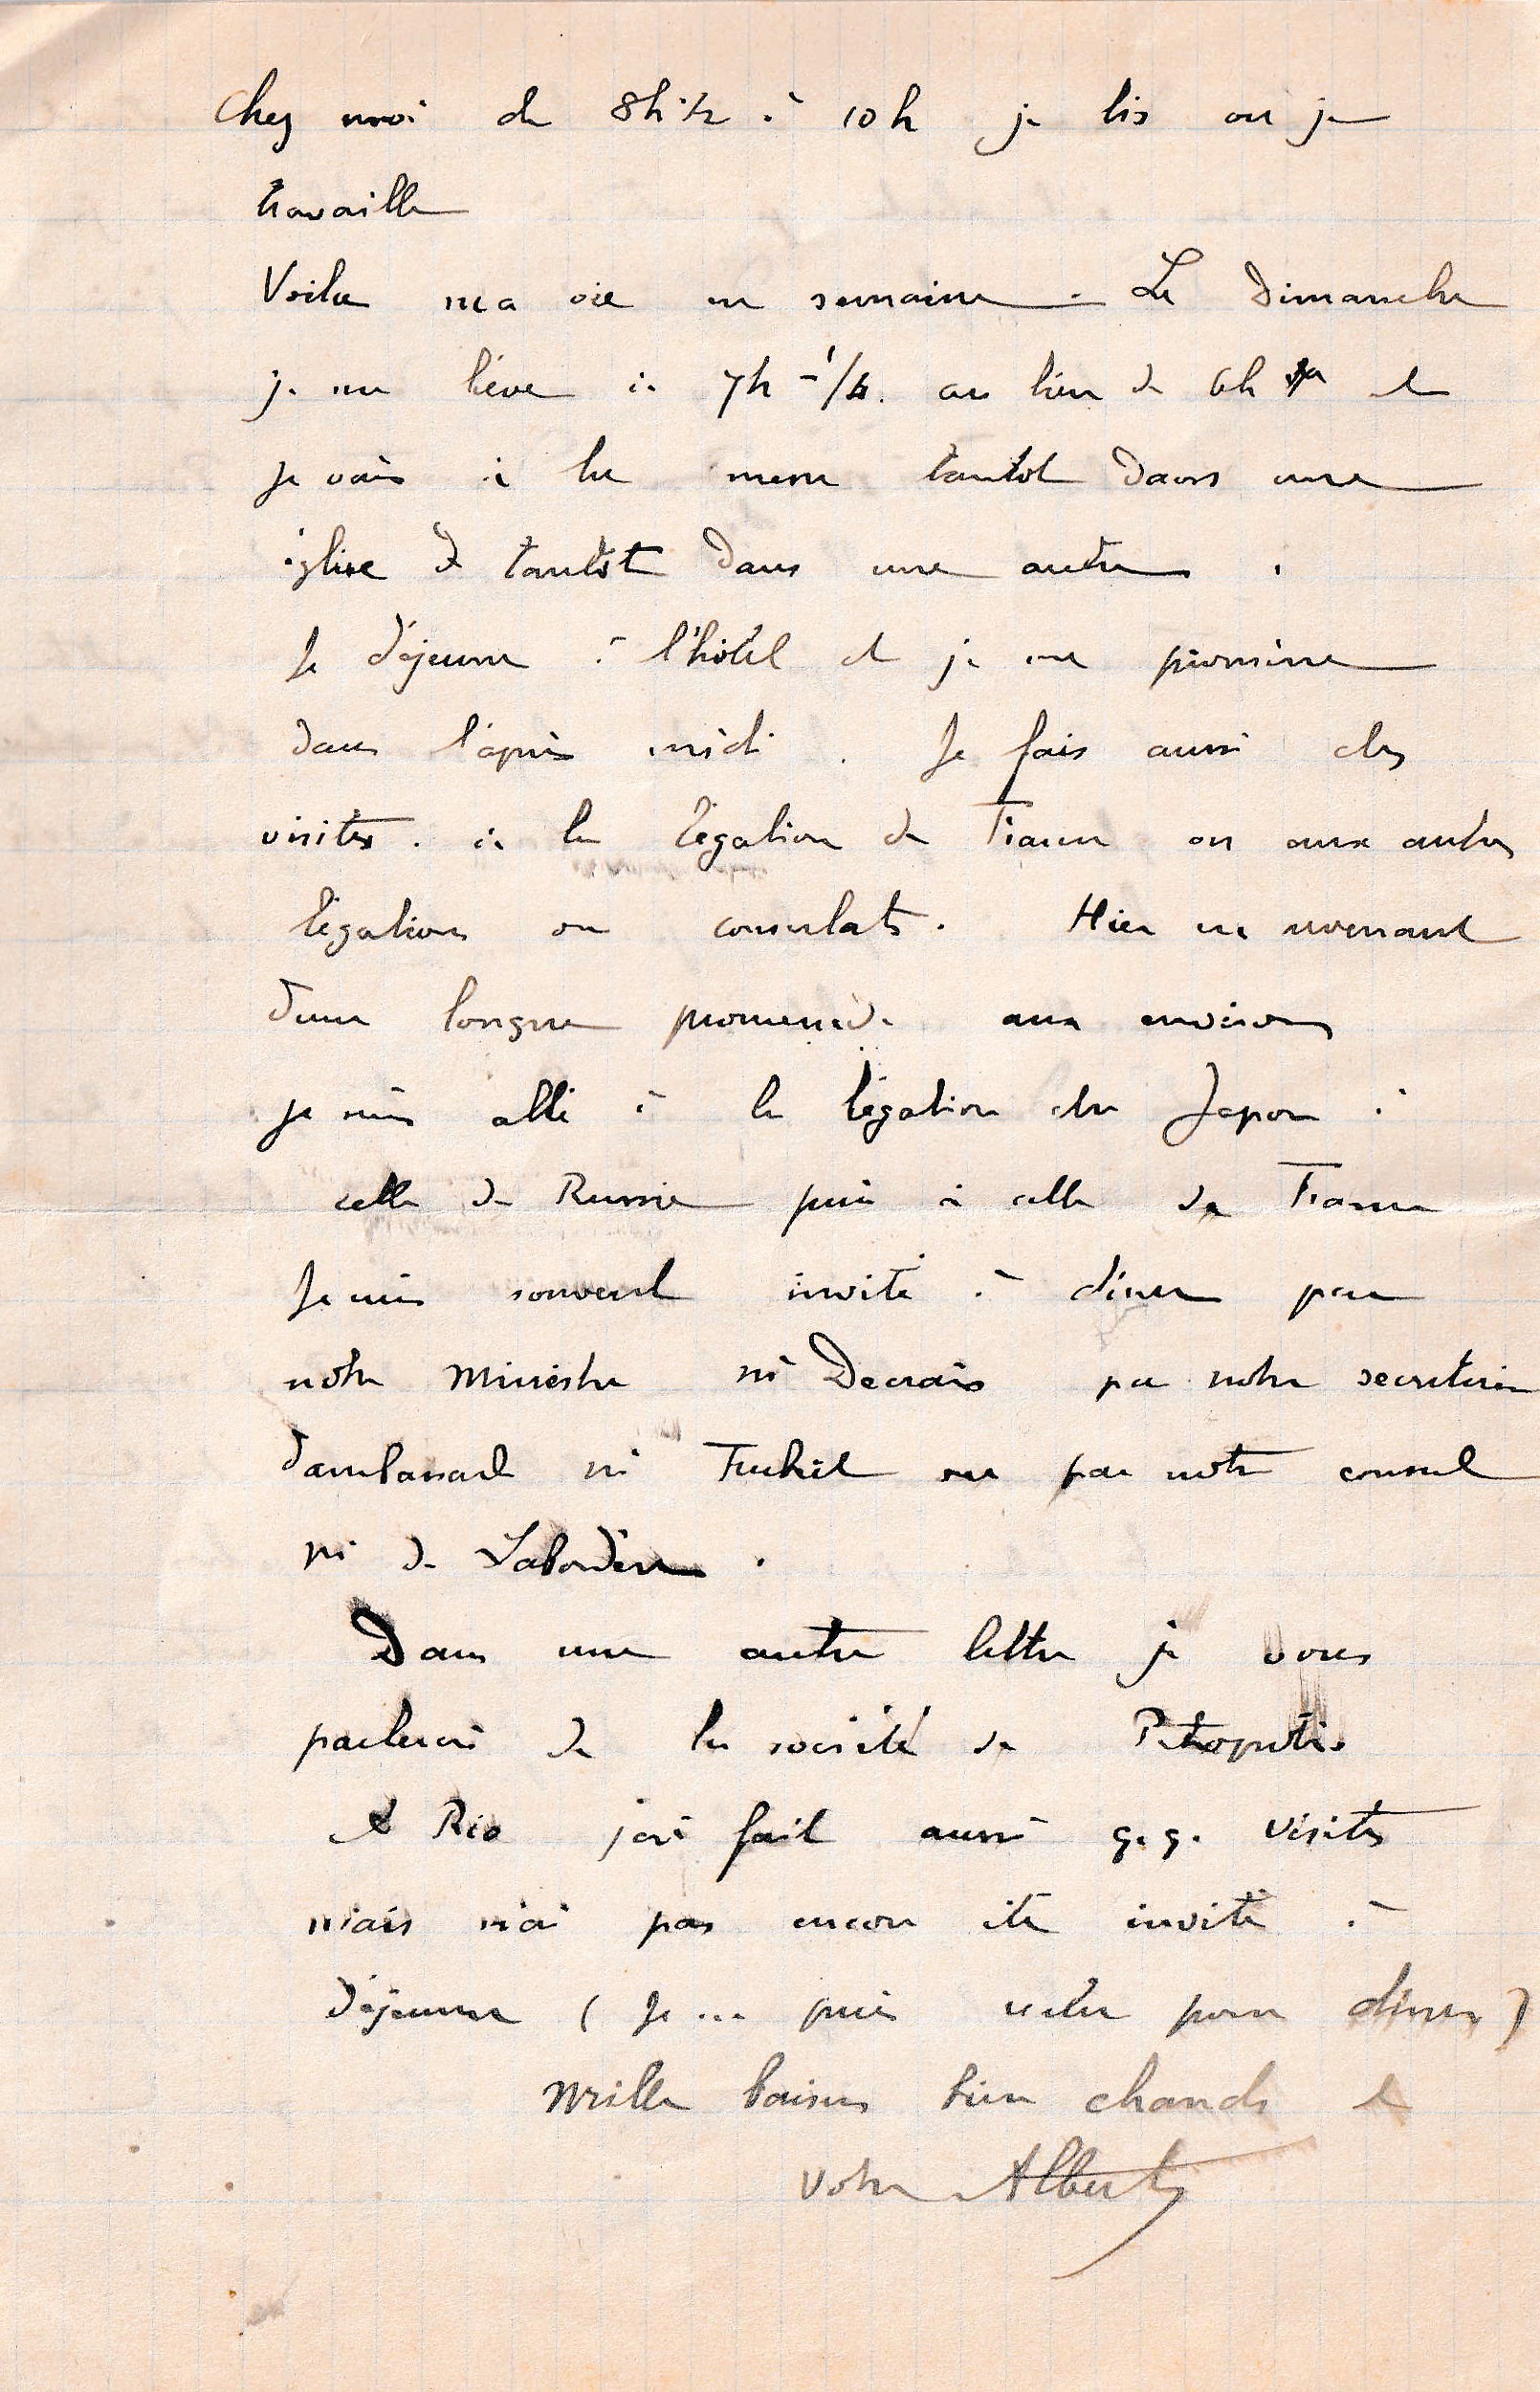 Chez moi de 8h 1/2 à 10h je lis ou je
travaille
Voila ma vie en semaine. Le Dimanche
je me lève à 7h 1/4. au lieu de 6h et
je vais à la messe tantôt dans une
église et tantôt dans une autre.
Je déjeune à l'hôtel et je me promène
dans l'après midi. Je fais aussi des
visites. à la légation de France ou aux autres
légations ou consulats. Hier en revenant
d'une longue promenade aux environs
je suis allé à la légation du Japon à
celle de Russie puis à celle de France
Je suis souvent invité à diner par
notre Ministre Mr Decrais par notre secrétaire
d'ambassade Mr ou par notre consul
Mr de Labordère.
Dans une autre lettre je vous
parlerai de la société de Petropolis
A Rio j'ai fait aussi q.q. visites
mais n'ai pas encore été invité à
déjeuner (Je ne puis rester pour diner)
Mille baisers bien chauds de
votre Albert